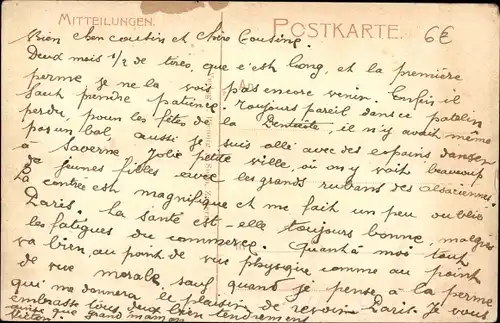 MITTEILUNGEN.
POSTKARTE.
6€
Bien cher cousin et chère Cousine.
Deux mois 1/2 de tirés, que c'est long, et la première
perme je ne la vois pas encore venir. Enfin il
faut prendre patience. Toujours pareil dans ce patelin
perdu, pour les fêtes de la Pentecôte, il n'y avait même
pas un bal, aussi je suis allé avec des copains danser
à Saverne jolie petite ville, où on y voit beaucoup
de jeunes filles avec les grands rubans des alsaciennes.
La contrée est magnifique et me fait un peu oublier
Paris. La santé est-elle toujours bonne, malgrès
les fatigues du commerce. Quant à moi tout
va bien, au point de vue physique comme au point
de vue morale, sauf quand je pense à la perme
qui me donnera le plaisir de revoir Paris. Je vous
embrasse tous deux bien tendrement
ainsi que grand maman